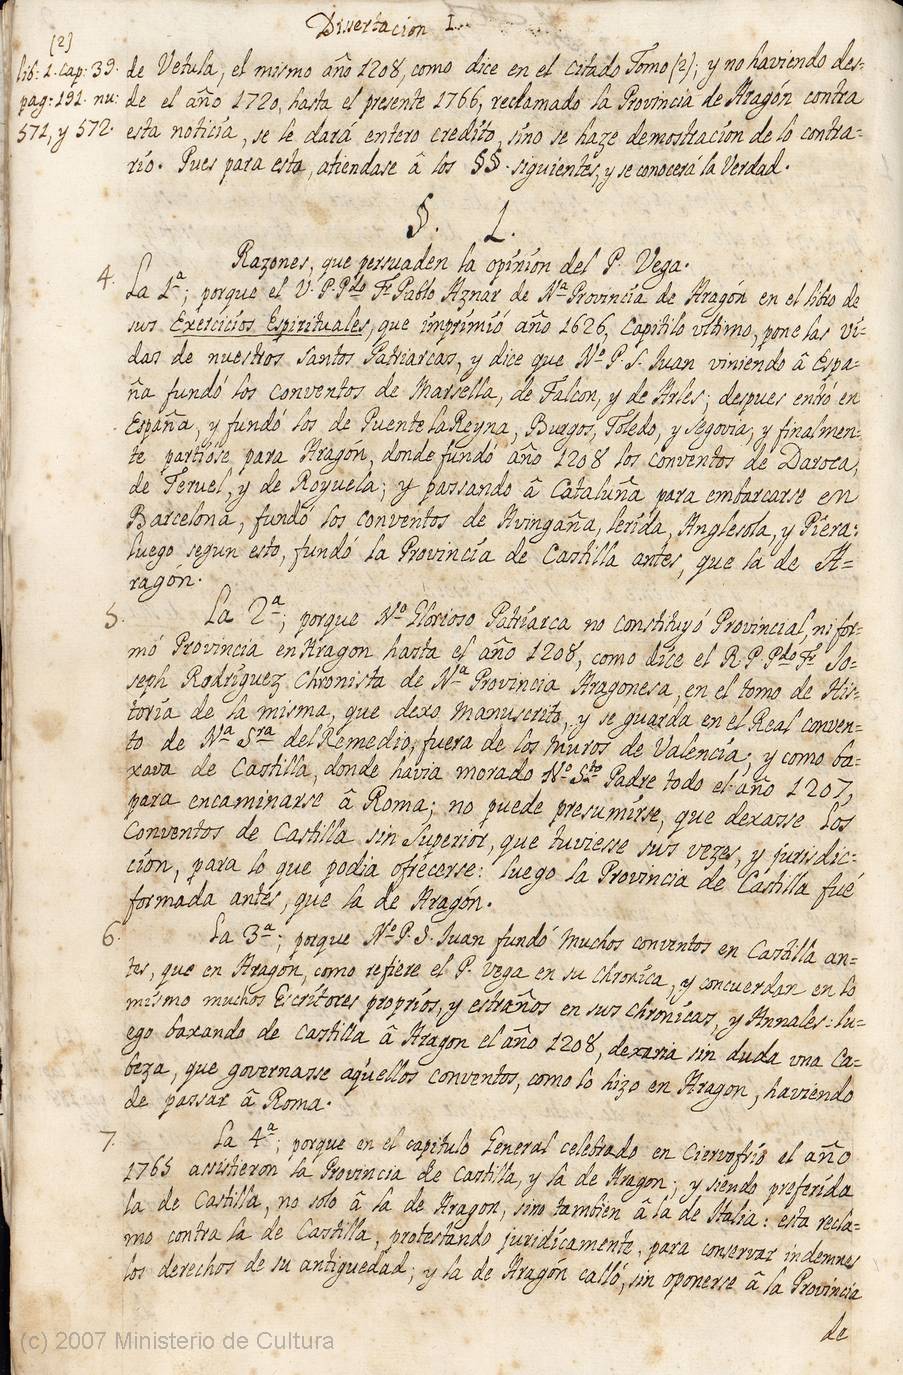 Disertacion I.
(2)
lib: 2. cap: 39.
pag: 191. nu:
571, y 572.
de Vetula, el mismo año 1208, como dice en el citado Tomo (2); y no haviendo des=
de el año 1720, hasta el presente 1766, reclamado la Provincia de Aragón contra
esta noticia, se le dará entero credito, sino se haze demostracion de lo contra=
rio. Pues para esto, atiendase â los §§. siguientes, y se conocerá la Verdad.
§. 1.
Razones, que persuaden la opinion del P. Vega.
4. La 1ª; porque el V. P. Pdo Fr Pablo Aznar de Nª Provincia de Aragón en el libro de
sus Exercicios Espirituales, que imprimió año 1626, capitilo ultimo, pone las Vi=
das de nuestros Santos Patriarcas, y dice que Nº P. S. Juan viniendo â Espa=
ña fundó los conventos de Marsella, de Falcon, y de Arles; despues entró en
España, y fundó los de Puente la Reyna, Burgos, Toledo, y Segovia; y finalmen=
te partiose para Aragón, donde fundó año 1208 los conventos de Daroca,
de Teruel, y de Royuela; y passando â Cataluña para embarcarse en
Barcelona, fundó los conventos de Avingaña, Lerida, Anglesola, y Piera:
luego segun esto, fundó la Provincia de Castilla antes, que la de A=
ragón.
5. La 2ª; porque Nº Glorioso Patriarca no constituyó Provincial, ni for=
mó Provincia en Aragon hasta el año 1208, como dice el R. P. Pdo Fr Jo=
seph Rodriguez Chronista de Nª Provincia Aragonesa, en el tomo de His=
toria de la misma, que dexo Manuscrito, y se guarda en el Real conven=
to de Nª Sra del Remedio, fuera de los muros de Valencia; y como ba=
xava de Castilla, donde havia morado Nº Sto Padre todo el año 1207,
para encaminarse â Roma; no puede presumirse, que dexasse los
Conventos de Castilla sin Superior, que tuviesse sus vezes, y jurisdic=
cion, para lo que podia ofrecerse: luego la Provincia de Castilla fué
formada antes, que la de Aragón.
6. La 3ª; porque Nº P. S. Juan fundó muchos conventos en Castilla an=
tes, que en Aragón, como refiere el P. Vega en su chronica, y concuerdan en lo
mismo muchos Escritores proprios, y estraños en sus chronicas, y Annales: lu=
ego baxando de Castilla â Aragon el año 1208, dexaria sin duda una Ca=
beza, que governasse aquellos conventos, como lo hizo en Aragon, haviendo
de passar â Roma.
7. La 4ª; porque en el capitulo General celebrado en Ciervofrio el año
1765 assistieron la Provincia de Castilla, y la de Aragon; y siendo preferida
la de Castilla, no solo â la de Aragon, sino tambien â la de Italia: esta recla=
mo contra la de Castilla, protestando juridicamente, para conservar indemnes
los derechos de su antiguedad; y la de Aragón calló, sin oponerse â la Provincia
de
(c) 2007 Ministerio de Cultura